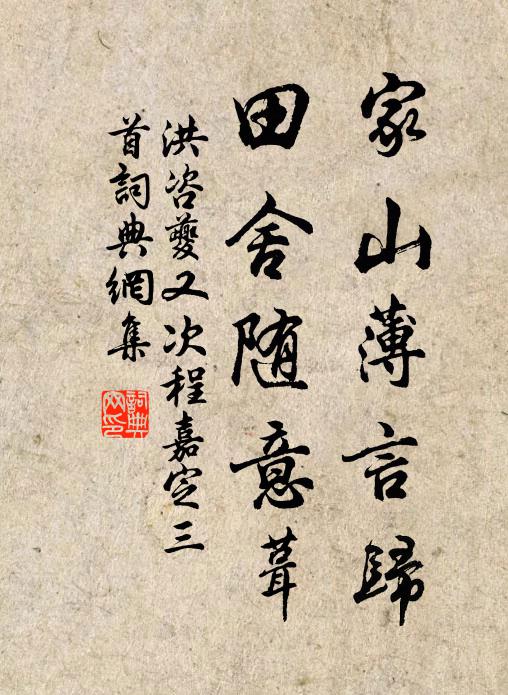 家山薄言歸
田舍隨意葺
洪咨夔又次程嘉定三
首詞典網集
詞典
网印